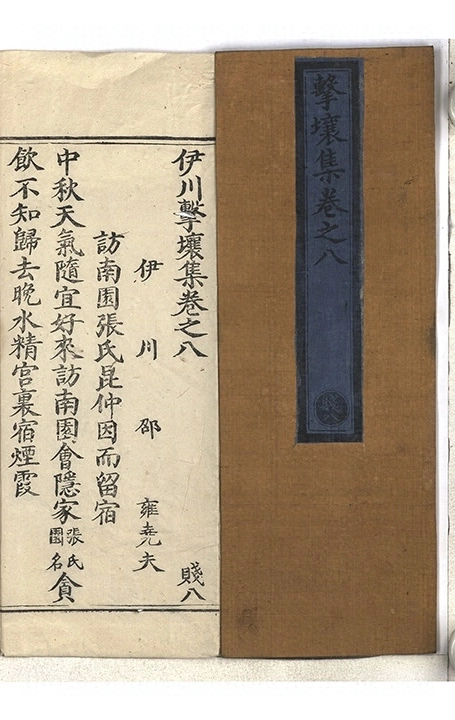 擊壤集卷之八
伊川擊壤集卷之八 賤八
伊川邵雍堯夫
訪南園張氏昆仲因而留宿
中秋天氣隨宜好來訪南園會隱家張氏園名貪
飲不知歸去晚水精宮裏宿煙霞